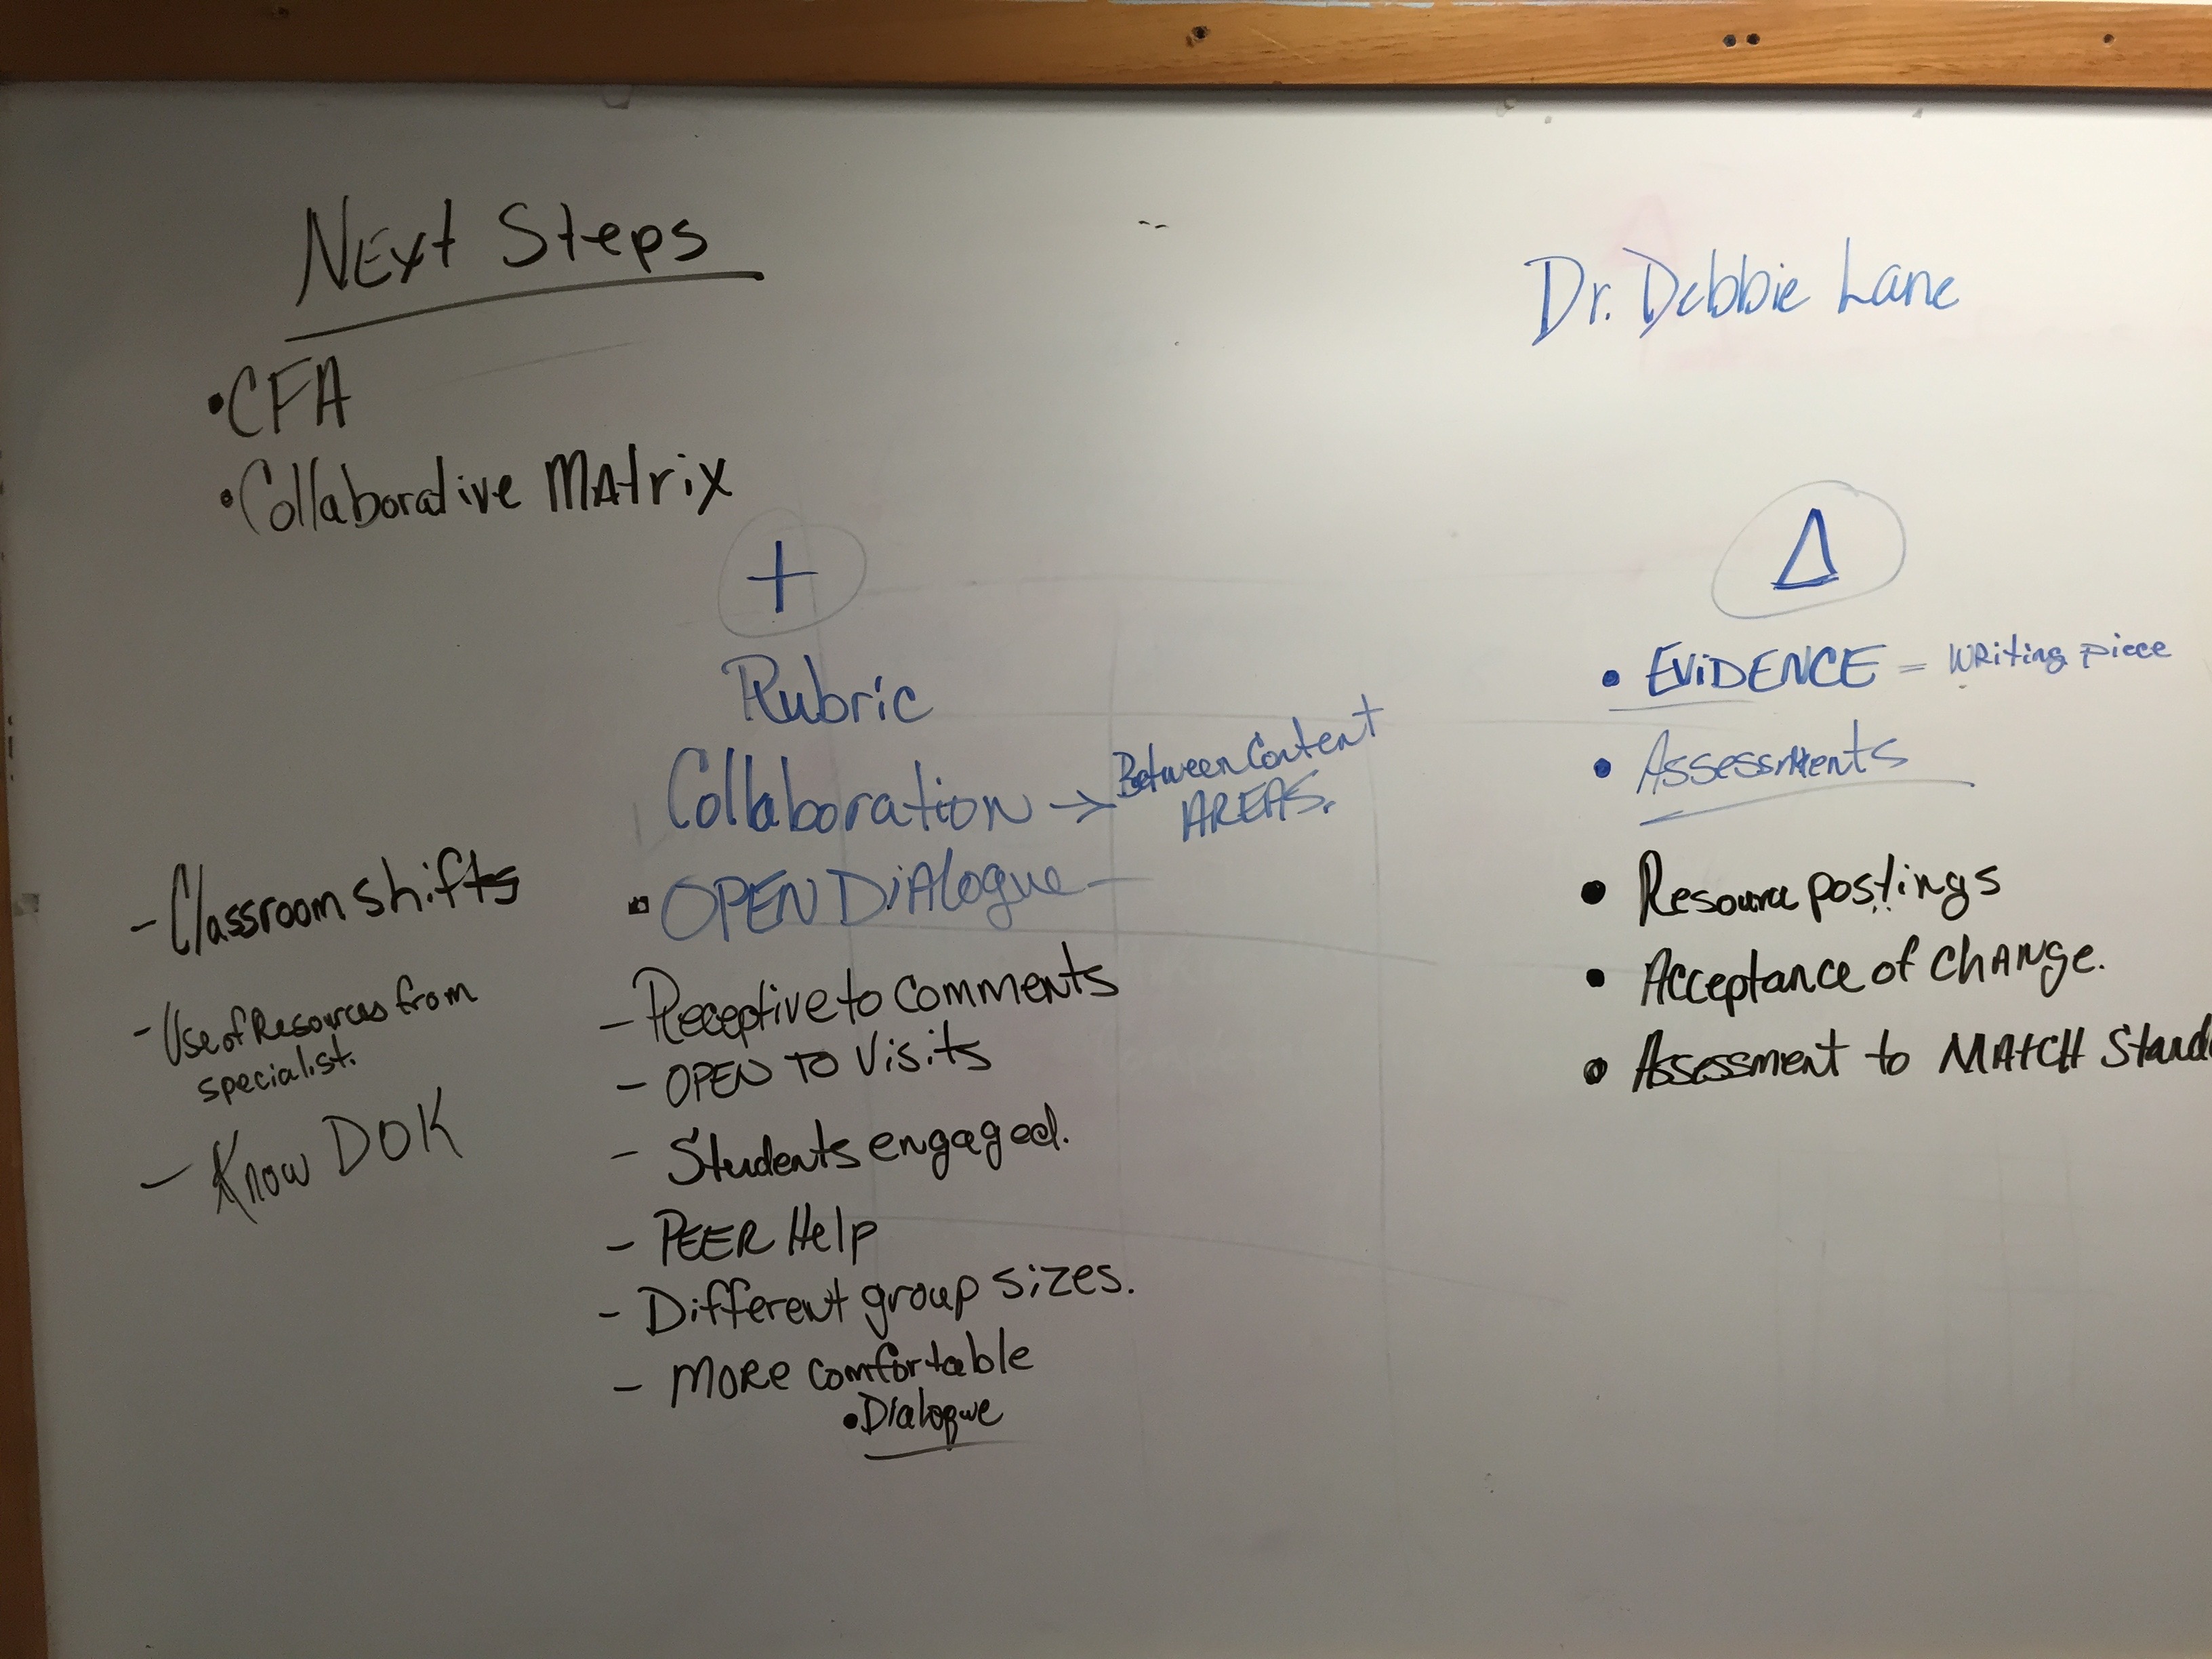 NExt Steps
• CFA
• Collaborative MAtrix
Dr. Debbie Lane
+
Rubric
Collaboration → Between Content
AREAS.
• OPEN DiAlogue –
– Receptive to comments
– OPEN TO Visits
– Students engaged.
– PEER Help
– Different group sizes.
– MORE comfortable
• Dialogue
– Classroom shifts
– Use of Resources from
specialist.
– Know DOK
Δ
• EViDENCE = WRiting piece
• AssessMents
• Resource postings
• Acceptance of ChANge.
• Assessment to MAtCH Stand